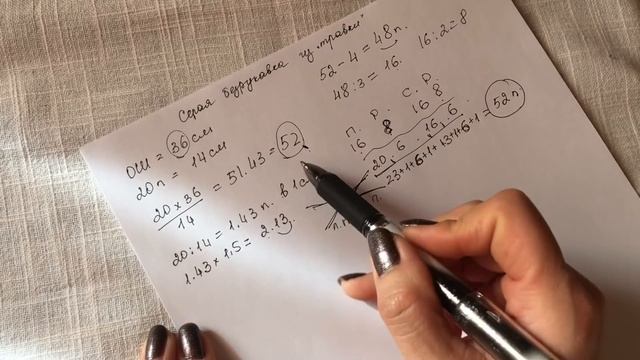 Серая безрукавка из "травки"
ОШ = 36 см
20п = 14 см
20 x 36 / 14 = 51.43 = 52
20:14 = 1.43п. в 1с
1.43 x 1.5 = 2.13
52-4 = 48п.
48:3 = 16. 16:2=8
П. Р. С. Р.
16 8 16 8
20, 6, 16, 6.
23+1+6+1+13+1+6+1 = 52п.